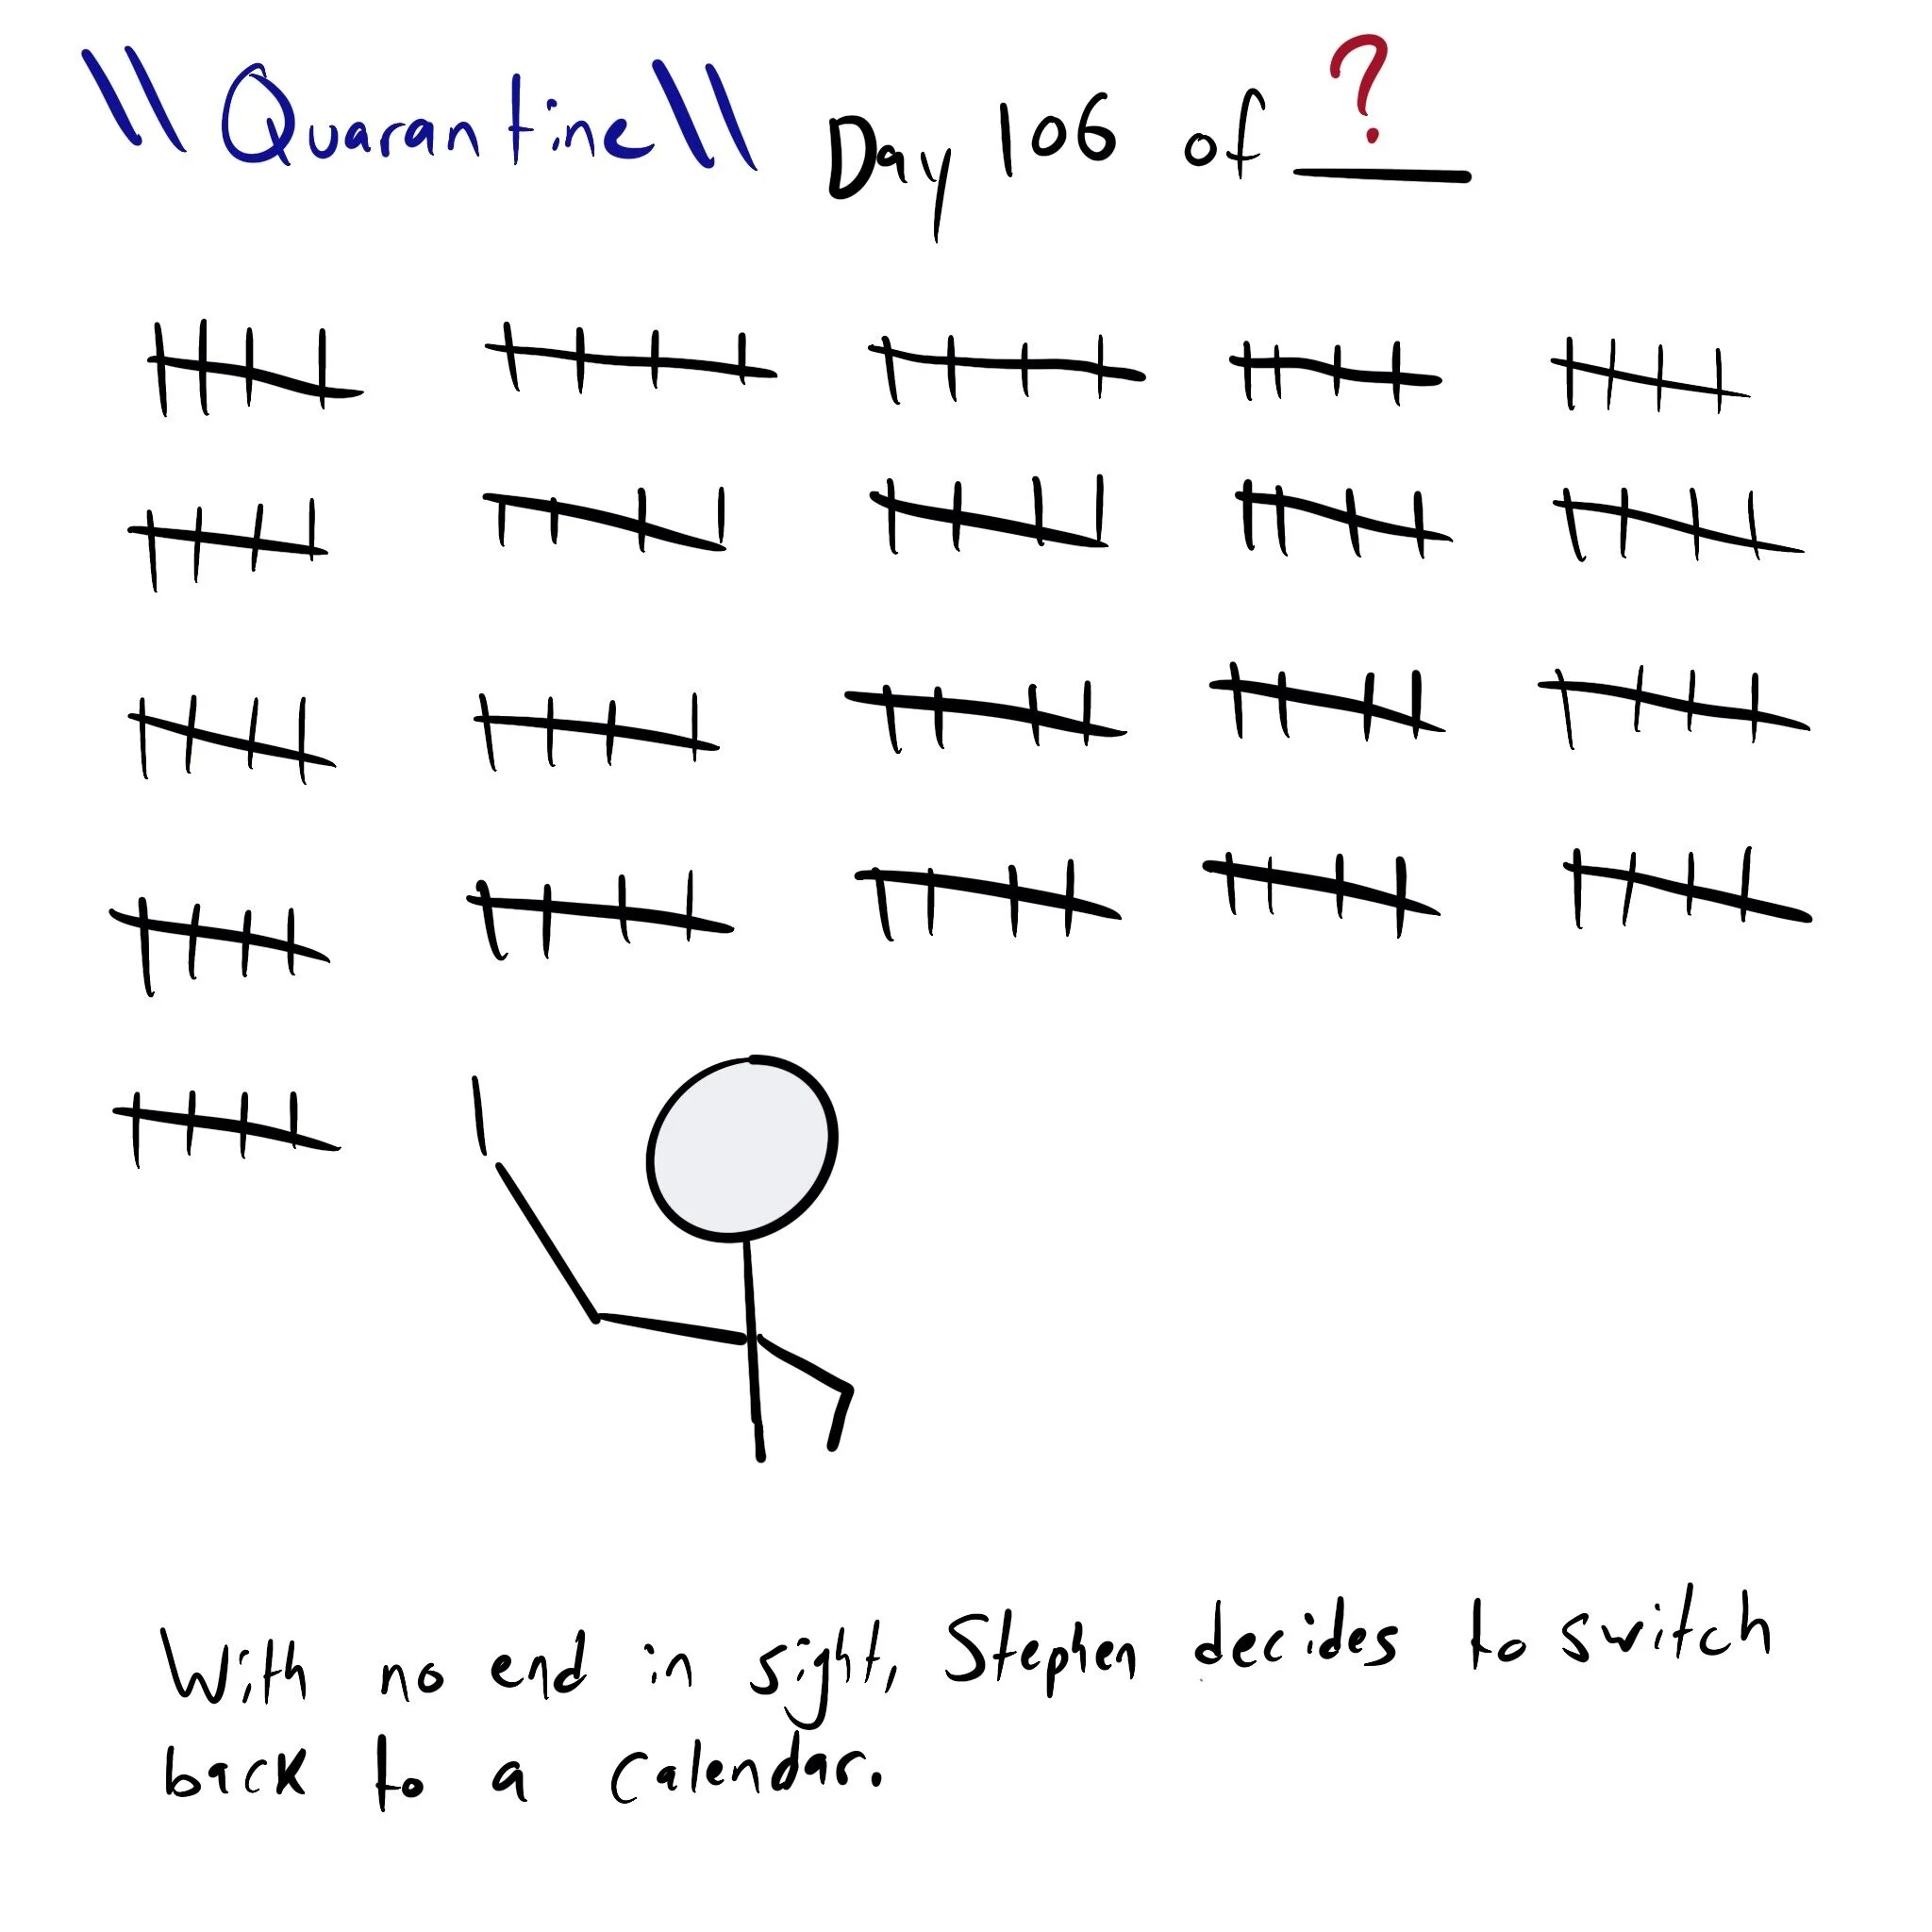 \\Quarantine\\ Day 106 of ?
With no end in sight, Stephen decides to switch
back to a calendar.